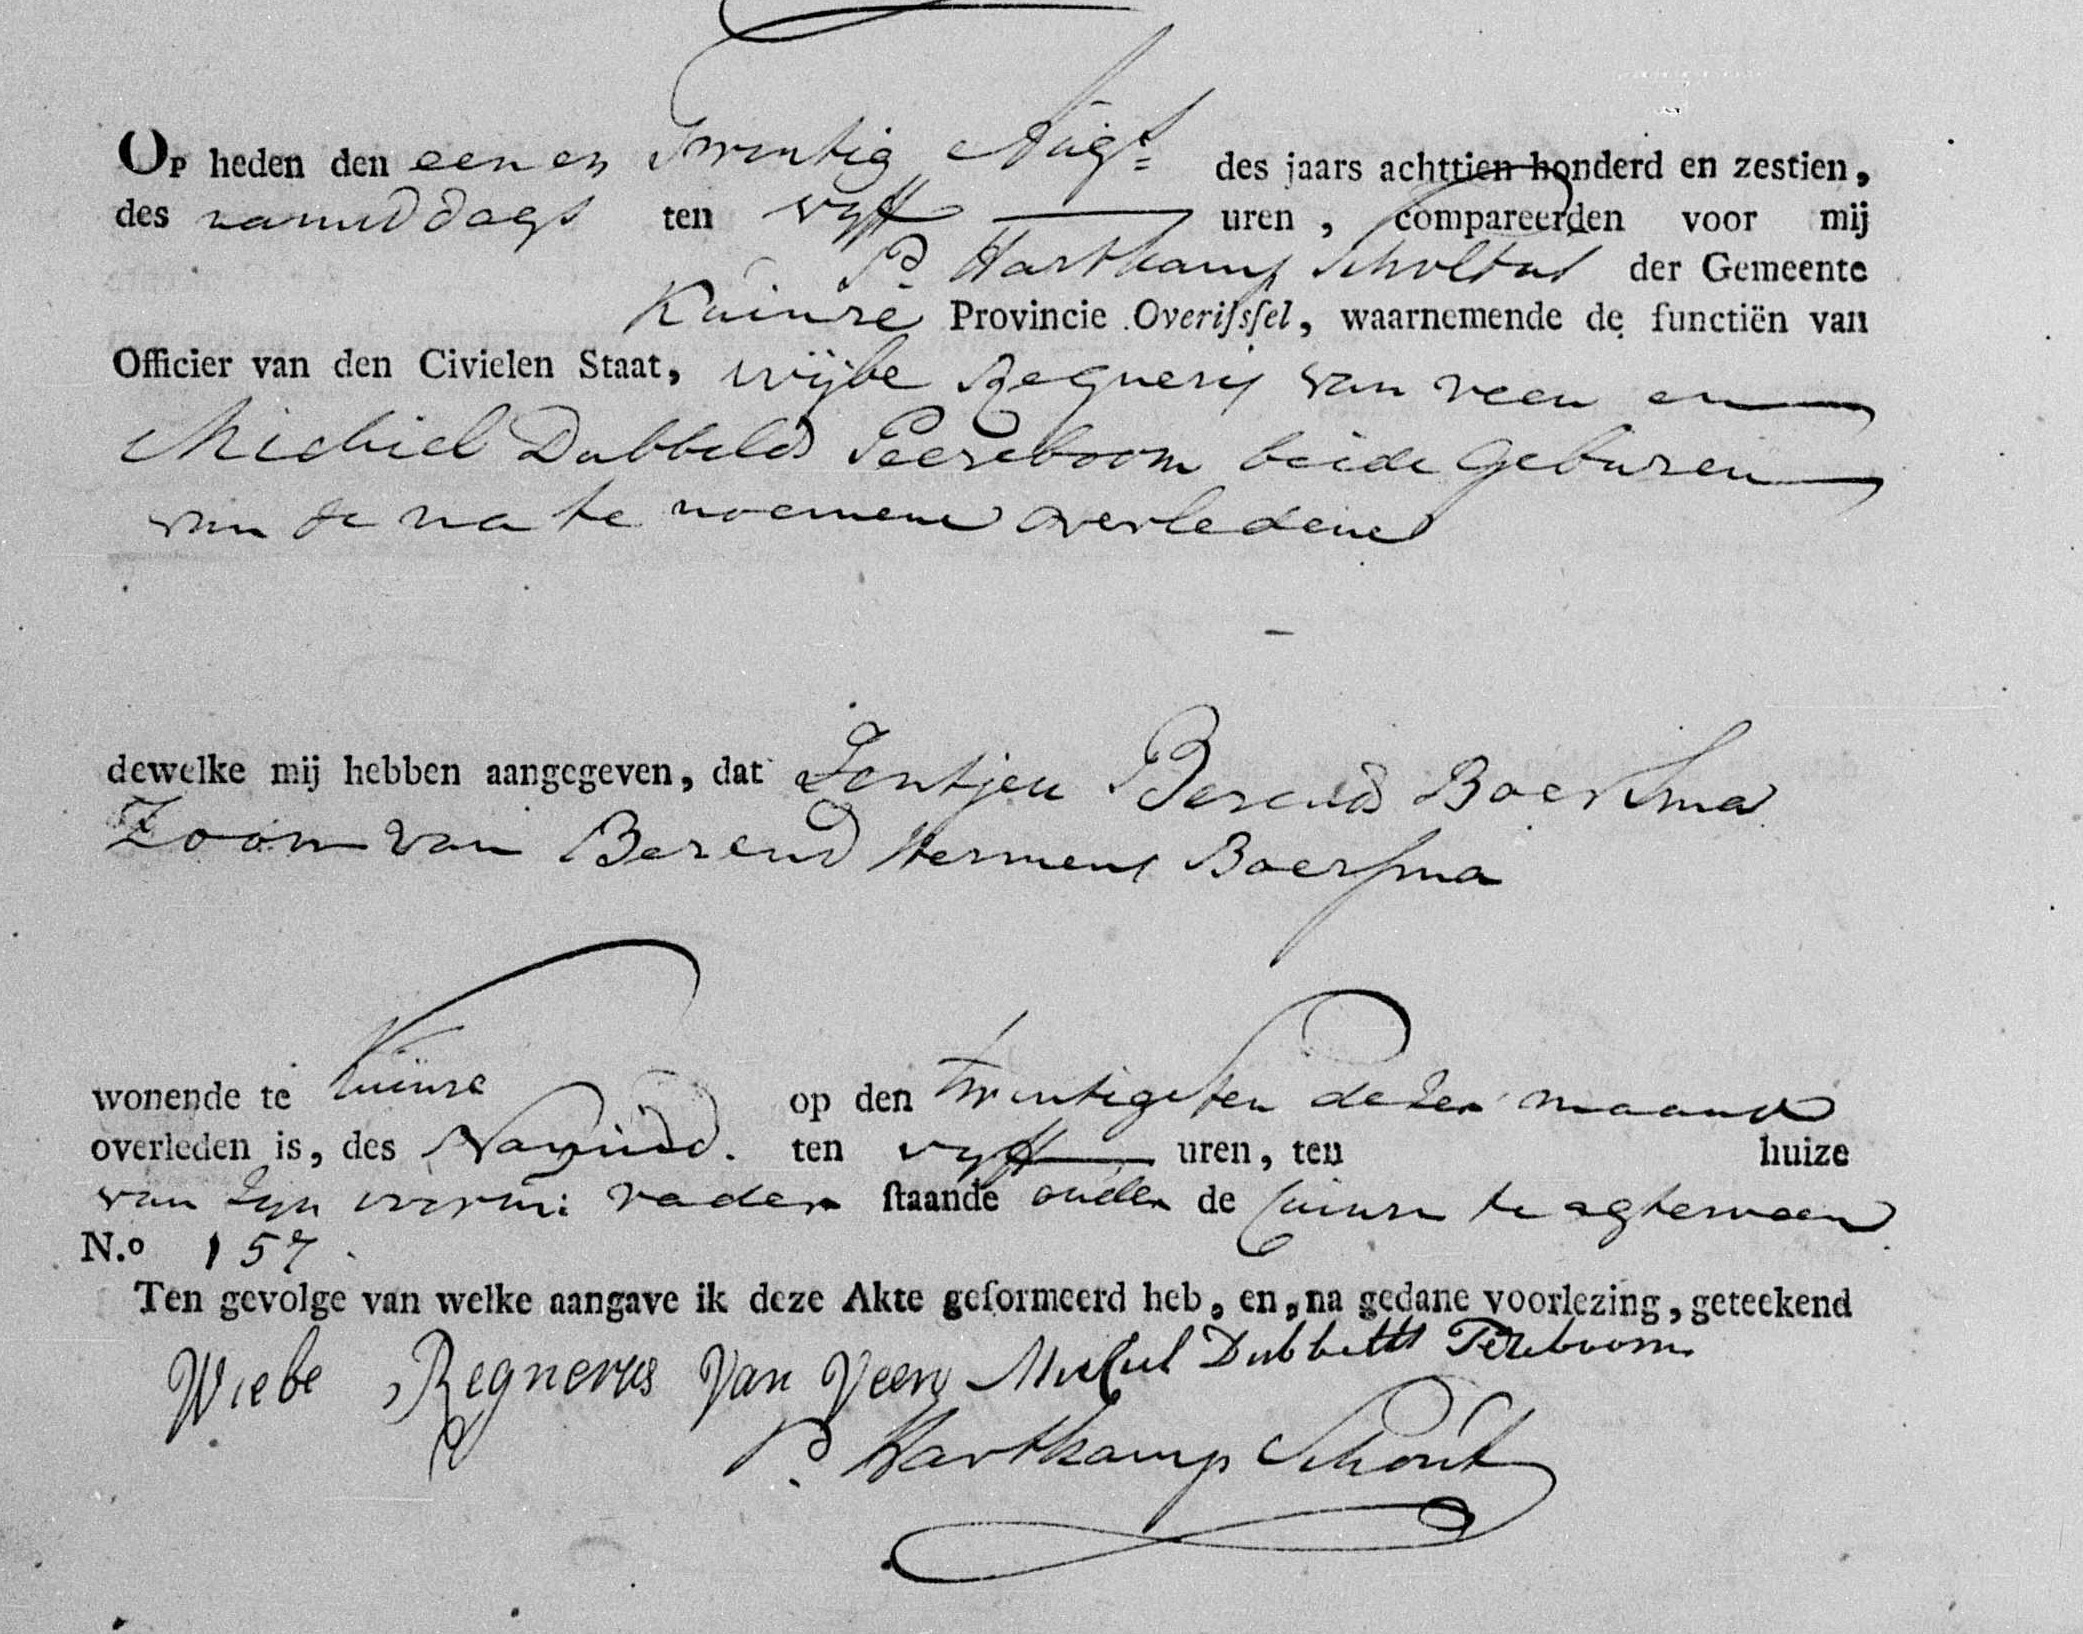 Op heden den een en Twentig Augt= des jaars achttien honderd en zestien,
des namiddags ten vyff uren, compareerden voor mij
P. Hartkamp Scholtus der Gemeente
Kuinre Provincie Overisſel, waarnemende de functiën van
Officier van den Civielen Staat, wijbe Regnerus van veen en
Michiel Dubbelds Peereboom beide Geburen
van de na te noemene overledene
dewelke mij hebben aangegeven, dat Berends Boersma
Zoon van Berend Hermens Boersma
wonende te Kuinre op den twintigsten dezer maand
overleden is, des Namidd. ten vyff uren, ten huize
van zyn vader ſtaande onder de Cuinre te agterveen
N.o 157.
Ten gevolge van welke aangave ik deze Akte geformeerd heb, en, na gedane voorlezing, geteekend
Wiebe Regnerus Van Veen Michiel Dubbelts Pereboom
P. Hartkamp Schout